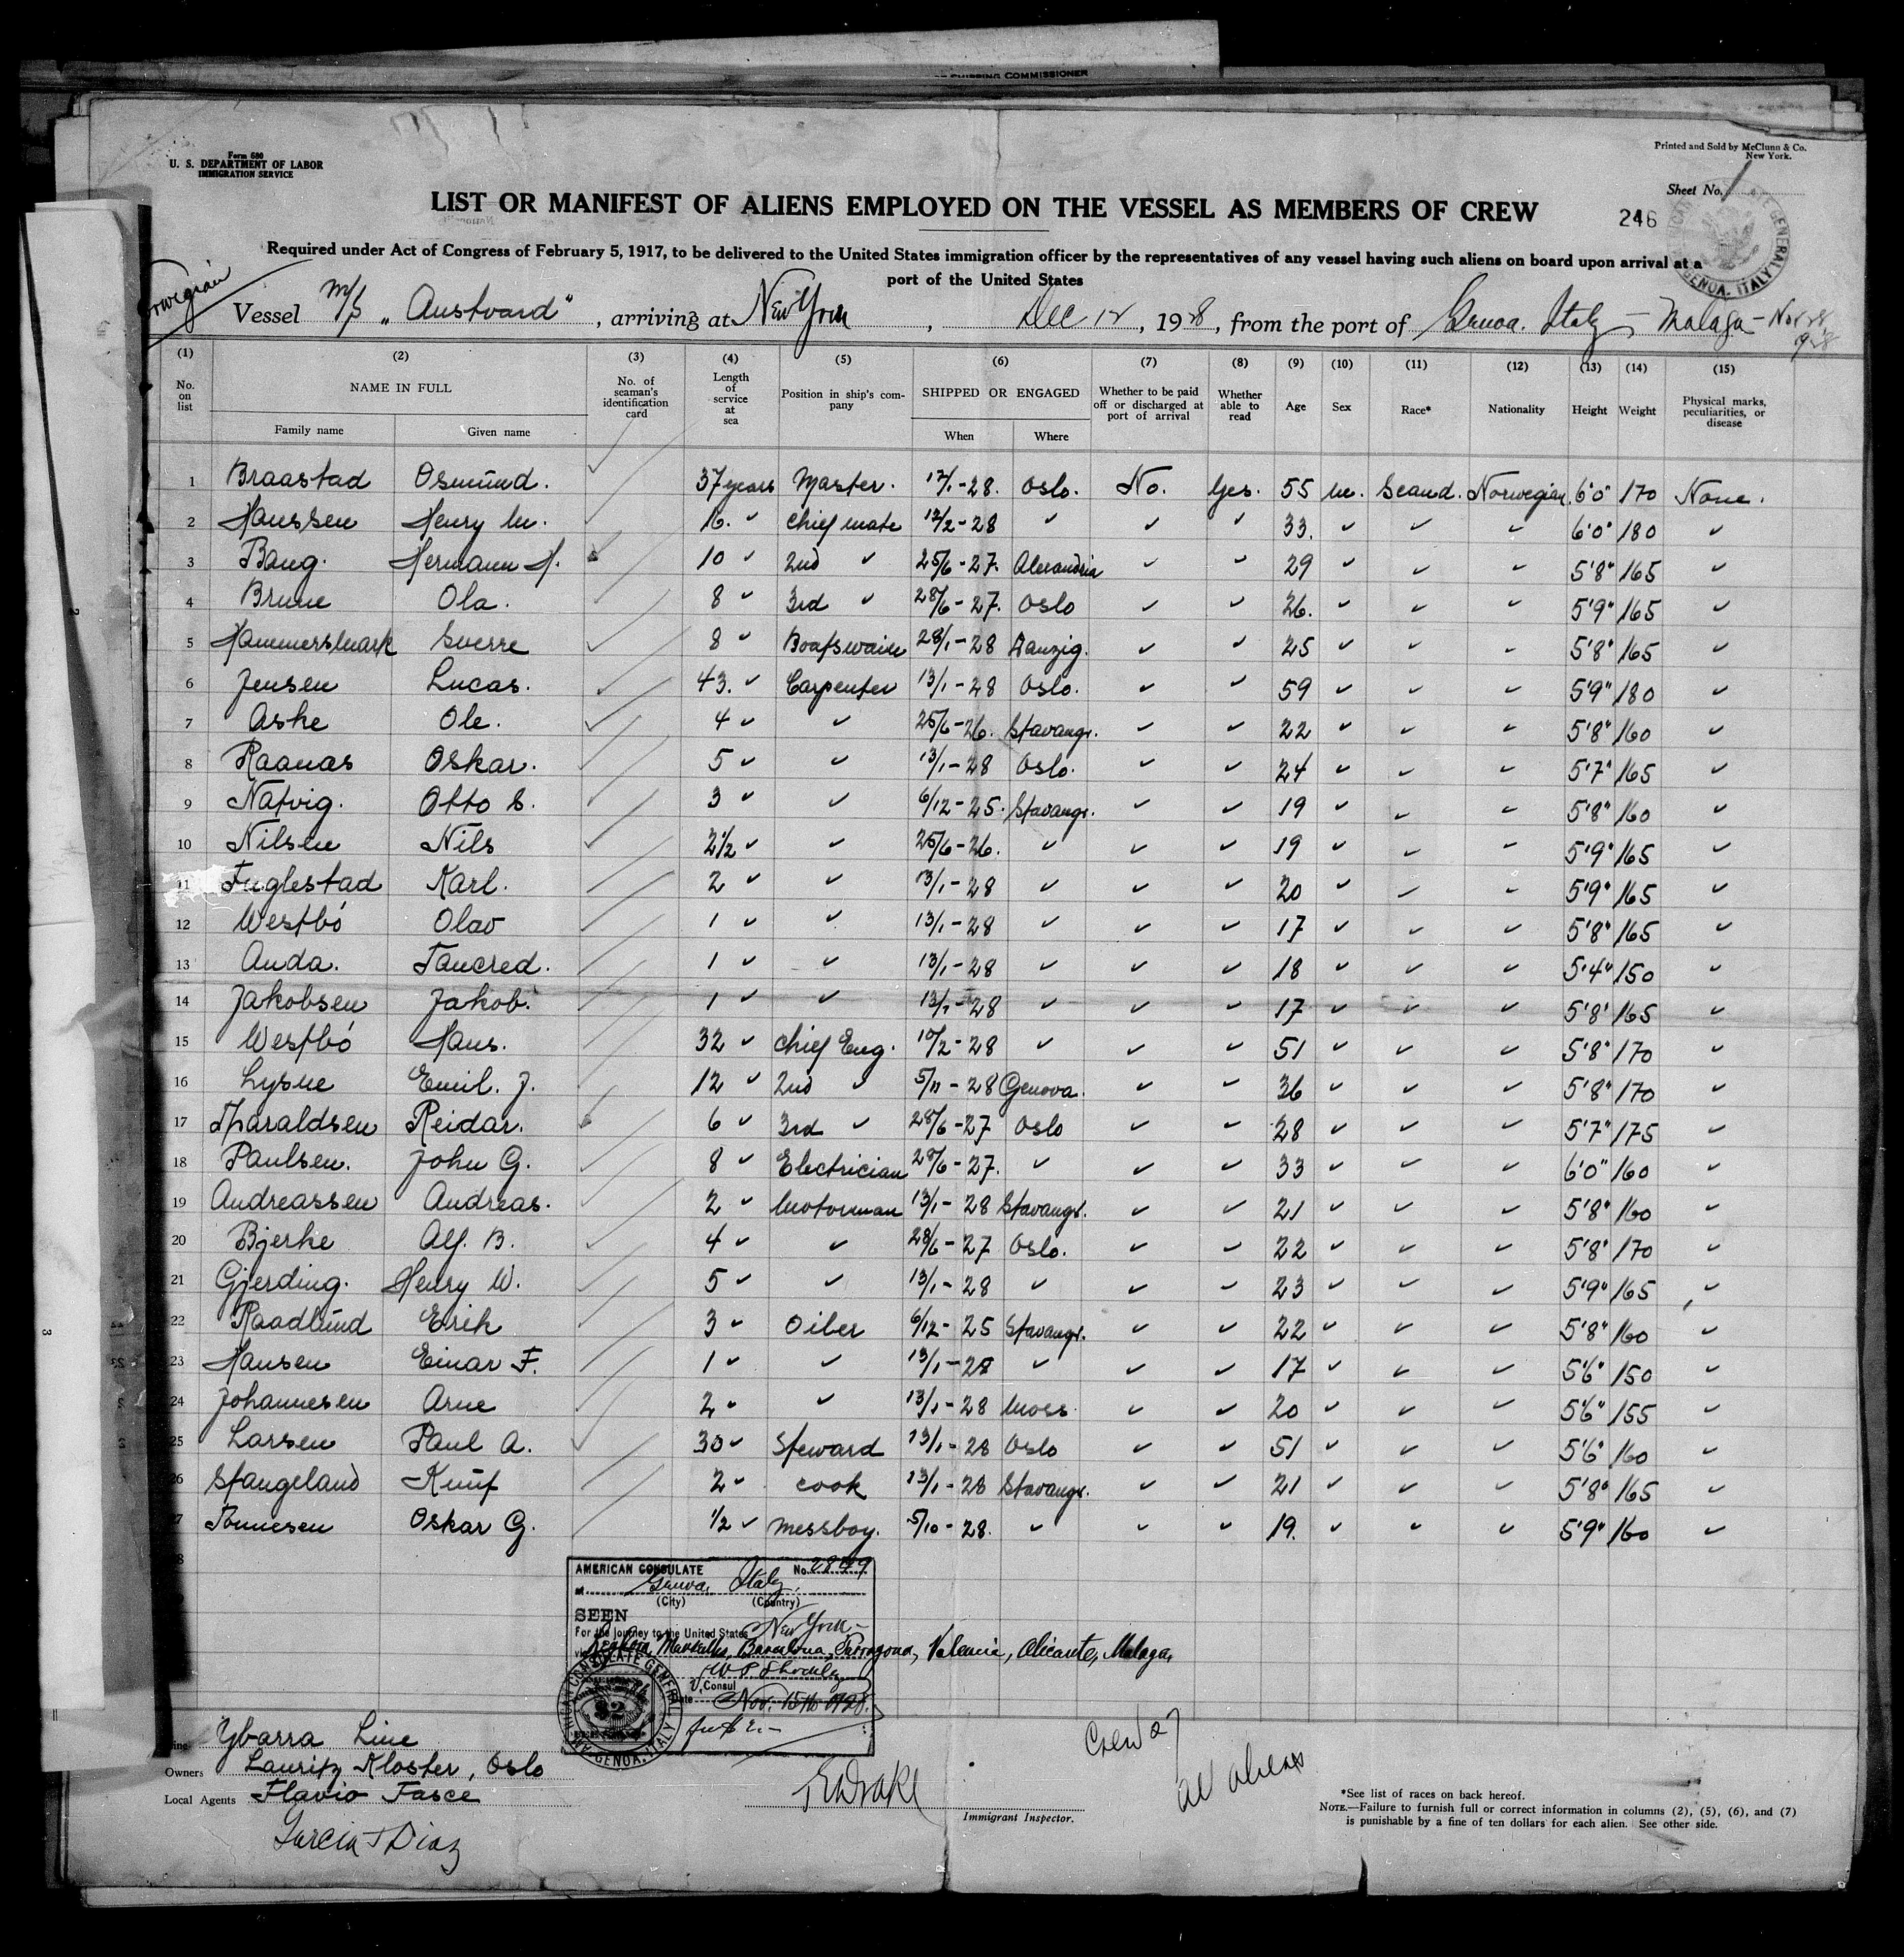 OF SHIPPING COMMISSIONER
Form 680
U. S. DEPARTMENT OF LABOR
IMMIGRATION SERVICE
Printed and Sold by McClunn & Co.
New York.
Sheet No. 1
246
LIST OR MANIFEST OF ALIENS EMPLOYED ON THE VESSEL AS MEMBERS OF CREW
Required under Act of Congress of February 5, 1917, to be delivered to the United States immigration officer by the representatives of any vessel having such aliens on board upon arrival at a
port of the United States
Norwegian
Vessel M/S „Austvard“, arriving at New York, Dec 12, 1928, from the port of Genoa. Italy - Malaga - Nov 28, 1928
(1) (2) (3) (4) (5) (6) (7) (8) (9) (10) (11) (12) (13) (14) (15)
No. on list NAME IN FULL No. of seaman's identification card Length of service at sea Position in ship's company SHIPPED OR ENGAGED Whether to be paid off or discharged at port of arrival Whether able to read Age Sex Race* Nationality Height Weight Physical marks, peculiarities, or disease
Family name Given name When Where
1 Braastad Osmund. 37 years Master. 13/1-28. Oslo. No. Yes. 55 m. Scand. Norwegian. 6'0" 170 None.
2 Hanssen Henry M. 16. ✓ Chief mate 13/2-28 ✓ ✓ ✓ 33. ✓ ✓ ✓ 6'0" 180 ✓
3 Bang. Hermann H. 10 ✓ 2nd ✓ 25/6-27. Alexandria ✓ ✓ 29 ✓ ✓ ✓ 5'8" 165 ✓
4 Brune Ola. 8 ✓ 3rd ✓ 28/6-27. Oslo ✓ ✓ 26. ✓ ✓ ✓ 5'9" 165 ✓
5 Hammersmark Sverre 8 ✓ Boatswain 28/1-28 Danzig. ✓ ✓ 25 ✓ ✓ ✓ 5'8" 165 ✓
6 Jensen Lucas. 43. ✓ Carpenter 13/1-28 Oslo. ✓ ✓ 59 ✓ ✓ ✓ 5'9" 180 ✓
7 Aske Ole. 4 ✓ ✓ 25/6-26. Stavangr. ✓ ✓ 22 ✓ ✓ ✓ 5'8" 160 ✓
8 Raanas Oskar. 5 ✓ ✓ 13/1-28 Oslo. ✓ ✓ 24 ✓ ✓ ✓ 5'7" 165 ✓
9 Natvig. Otto S. 3 ✓ ✓ 6/12-25. Stavangr. ✓ ✓ 19 ✓ ✓ ✓ 5'8" 160 ✓
10 Nilsen Nils 2½ ✓ ✓ 25/6-26. ✓ ✓ ✓ 19 ✓ ✓ ✓ 5'9" 165 ✓
11 Fuglestad Karl. 2 ✓ ✓ 13/1-28 ✓ ✓ ✓ 20 ✓ ✓ ✓ 5'9" 165 ✓
12 Westbó Olav 1 ✓ ✓ 13/1-28 ✓ ✓ ✓ 17 ✓ ✓ ✓ 5'8" 165 ✓
13 Anda. Tancred. 1 ✓ ✓ 13/1-28 ✓ ✓ ✓ 18 ✓ ✓ ✓ 5'4" 150 ✓
14 Jakobsen Jakob. 1 ✓ ✓ 13/1-28 ✓ ✓ ✓ 17 ✓ ✓ ✓ 5'8" 165 ✓
15 Westbó Hans. 32 ✓ Chief Eng. 10/2-28 ✓ ✓ ✓ 51 ✓ ✓ ✓ 5'8" 170 ✓
16 Lysne Emil. J. 12 ✓ 2nd ✓ 5/11-28 Genova. ✓ ✓ 36 ✓ ✓ ✓ 5'8" 170 ✓
17 Tharaldsen Reidar. 6 ✓ 3rd ✓ 28/6-27 Oslo ✓ ✓ 28 ✓ ✓ ✓ 5'7" 175 ✓
18 Paulsen. John G. 8 ✓ Electrician 28/6-27. ✓ ✓ ✓ 33 ✓ ✓ ✓ 6'0" 160 ✓
19 Andreassen Andreas. 2 ✓ Motorman 13/1-28 Stavangr. ✓ ✓ 21 ✓ ✓ ✓ 5'8" 160 ✓
20 Bjerke Alf. B. 4 ✓ ✓ 28/6-27 Oslo. ✓ ✓ 22 ✓ ✓ ✓ 5'8" 170 ✓
21 Gjerding. Henry W. 5 ✓ ✓ 13/1-28 ✓ ✓ ✓ 23 ✓ ✓ ✓ 5'9" 165 ✓
22 Raadlund Erik 3 ✓ Oiler 6/12-25 Stavangr. ✓ ✓ 22 ✓ ✓ ✓ 5'8" 160 ✓
23 Hansen Einar F. 1 ✓ ✓ 13/1-28 ✓ ✓ ✓ 17 ✓ ✓ ✓ 5'6" 150 ✓
24 Johannesen Arne 2 ✓ ✓ 13/1-28 Moss ✓ ✓ 20 ✓ ✓ ✓ 5'6" 155 ✓
25 Larsen Paul A. 30 ✓ Steward 13/1-28 Oslo ✓ ✓ 51 ✓ ✓ ✓ 5'6" 160 ✓
26 Stangeland Knut 2 ✓ cook 13/1-28 Stavangr. ✓ ✓ 21 ✓ ✓ ✓ 5'8" 165 ✓
27 Tonnesen Oskar G. ½ ✓ messboy. 5/10-28. ✓ ✓ ✓ 19. ✓ ✓ ✓ 5'9" 160 ✓
AMERICAN CONSULATE No. 2849
at Genoa, Italy,
(City) (Country)
SEEN
For the journey to the United States New York -
via Marseilles, Barcelona, Tarragona, Valencia, Alicante, Malaga,
V. Consul
Date Nov. 15th 1928.
AMERICAN CONSULATE GENERAL GENOA, ITALY
Ybarra Line
Owners Lauritz Kloster, Oslo
Local Agents Flavio Fasce
Garcia & Diaz
Crew 27
all aliens
Immigrant Inspector.
*See list of races on back hereof.
NOTE.—Failure to furnish full or correct information in columns (2), (5), (6), and (7)
is punishable by a fine of ten dollars for each alien. See other side.